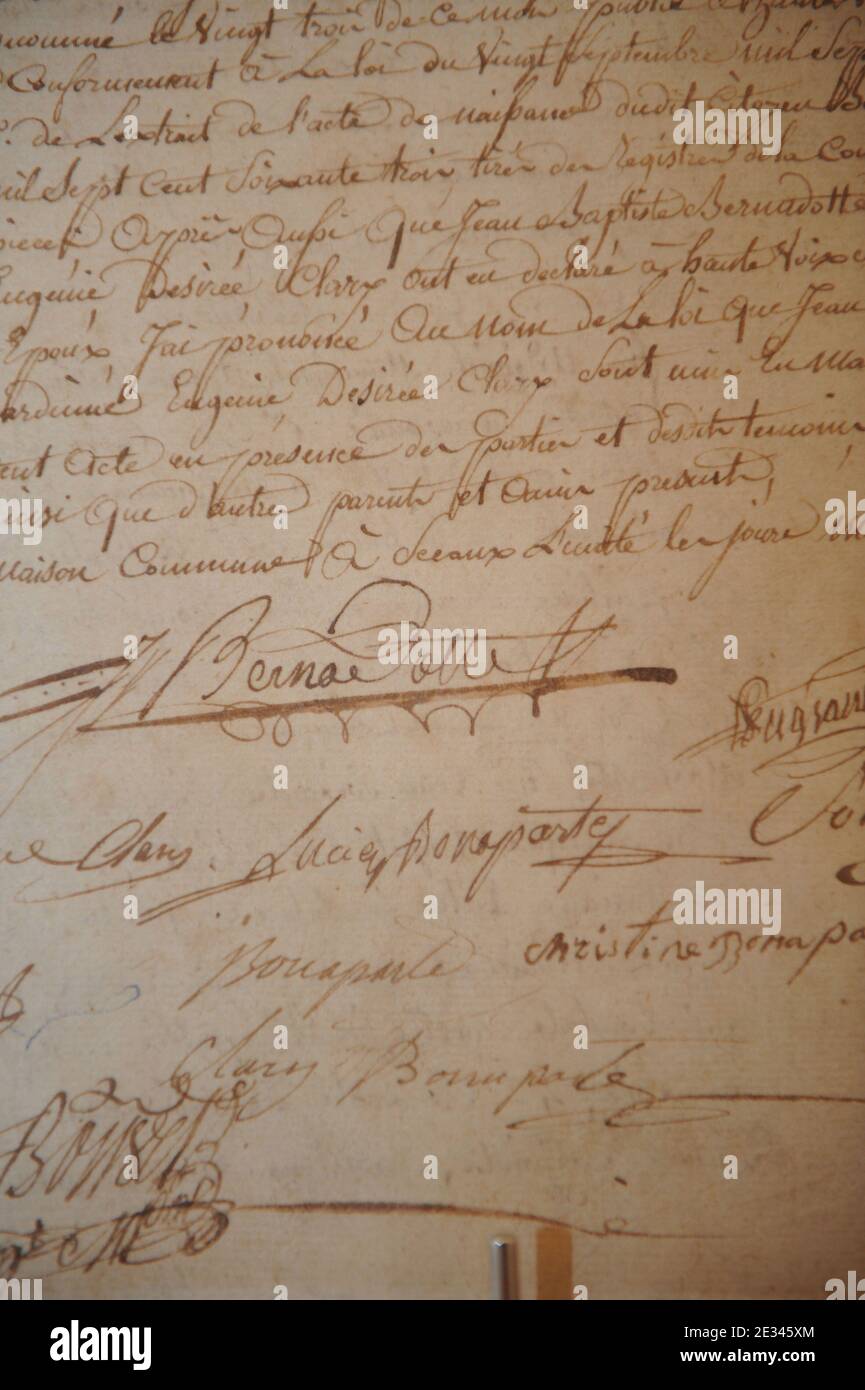 le Vingt trois de ce mois publié
Conformément à La loi du Vingt Septembre mil Sept
de Lextrait de l'acte de naissance dudit Citoyen
mil Sept Cent Soixante trois tiré des Régistres de la
Après Aussi Que Jean Baptiste Bernadotte
Eugénie Désirée Clary ont eu declaré à haute Voix
Epoux J'ai prononcé Au nom de La loi que Jean
Eugénie Désirée Clary Sont unis En
Acte en présence des parties et desdits temoins
ainsi Que d'autres parents et Amis présents,
Maison Commune à Sceaux L'unité les jours
Bernadotte
Clary Lucien Bonaparte
Bonaparte Christine Bonapa
Clary Bonaparte
alamy
Image ID: 2E345XM
www.alamy.com